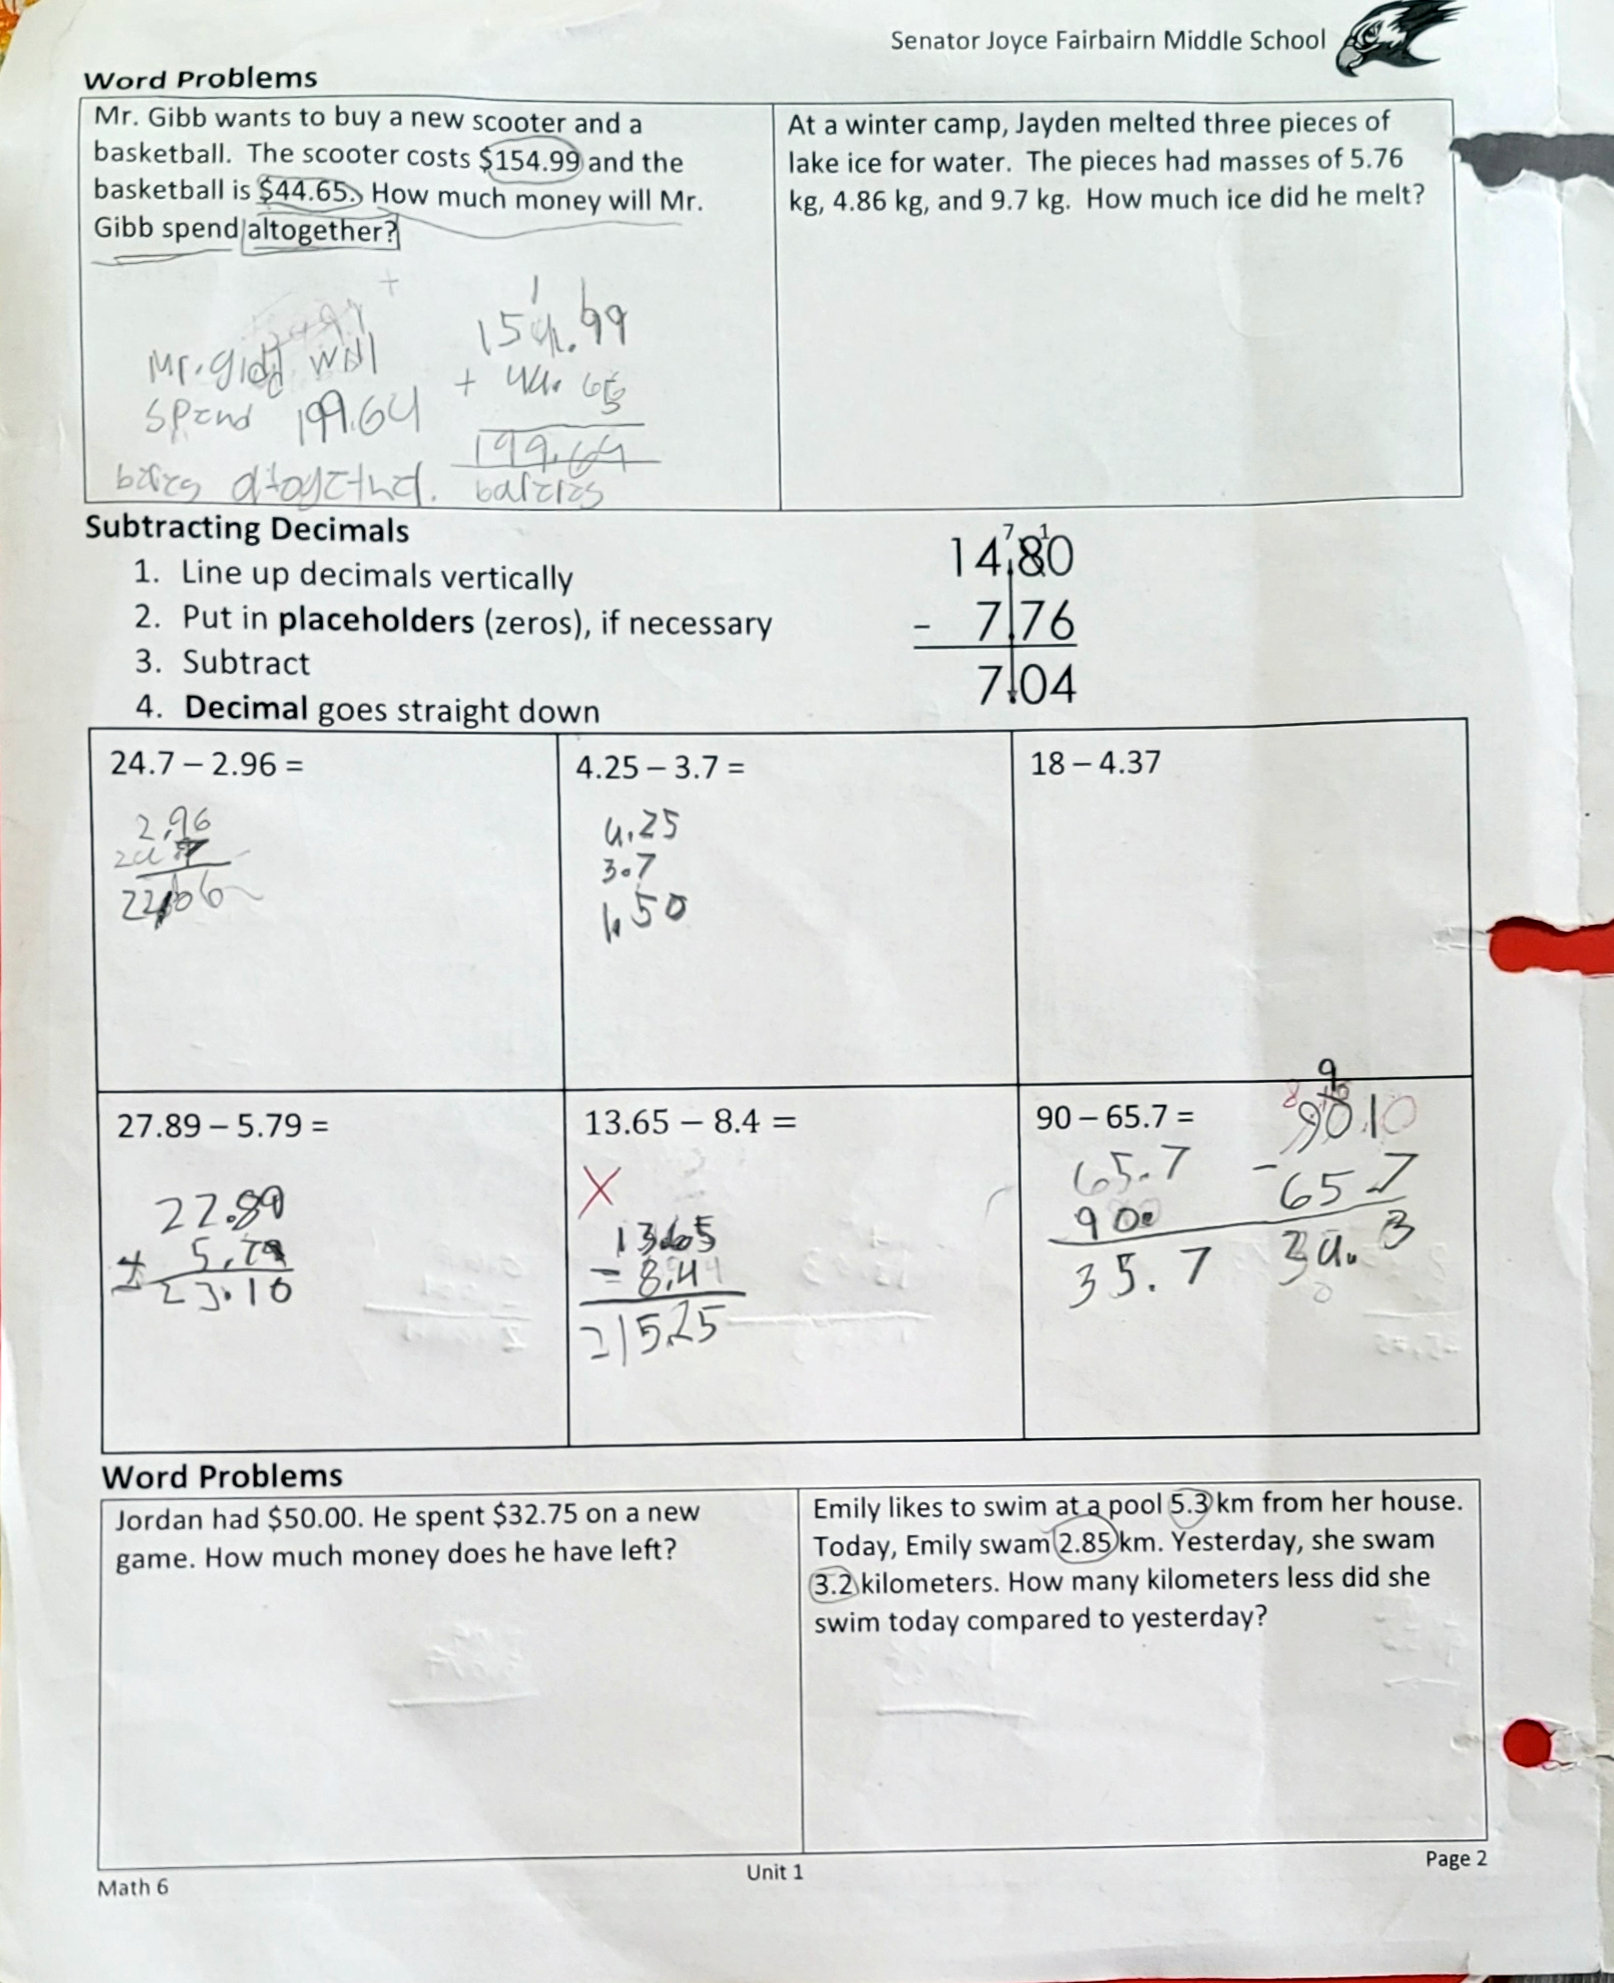 Senator Joyce Fairbairn Middle School
Word Problems
Mr. Gibb wants to buy a new scooter and a
basketball. The scooter costs $154.99 and the
basketball is $44.65. How much money will Mr.
Gibb spend altogether?
+
1
154.99
+ 44.65
199.64
Mr. gidd will
spend 199.64
At a winter camp, Jayden melted three pieces of
lake ice for water. The pieces had masses of 5.76
kg, 4.86 kg, and 9.7 kg. How much ice did he melt?
Subtracting Decimals
1. Line up decimals vertically
2. Put in placeholders (zeros), if necessary
3. Subtract
4. Decimal goes straight down
7 1
14.80
- 7.76
7.04
24.7 – 2.96 =
2.96
4.25 – 3.7 =
4.25
3.7
1.50
18 – 4.37
27.89 – 5.79 =
22.89
5.79
23.10
13.65 – 8.4 =
X
13.65
- 8.4
21525
90 – 65.7 =
65.7
90.
35.7
9
8
90.10
- 65.7
34.3
Word Problems
Jordan had $50.00. He spent $32.75 on a new
game. How much money does he have left?
Emily likes to swim at a pool 5.3 km from her house.
Today, Emily swam 2.85 km. Yesterday, she swam
3.2 kilometers. How many kilometers less did she
swim today compared to yesterday?
Math 6
Unit 1
Page 2